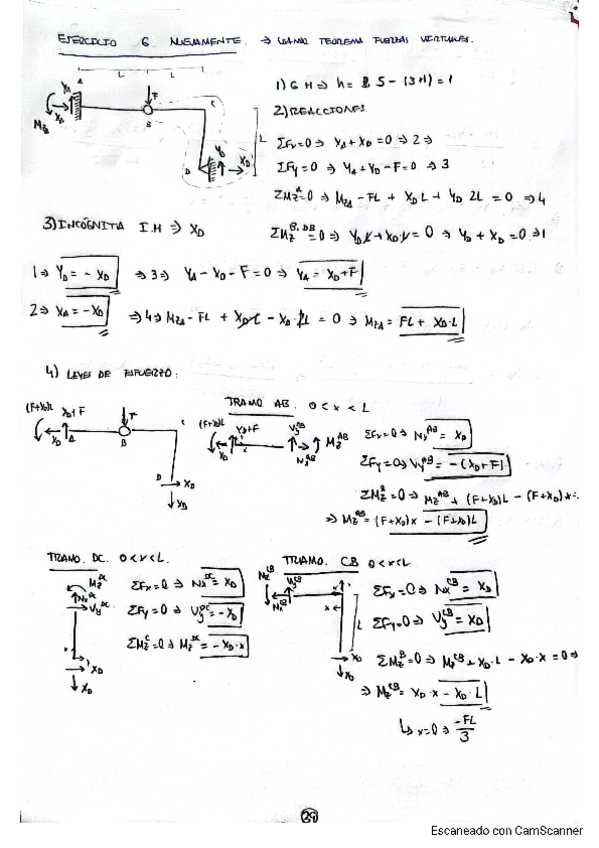 EJERCICIO 6 NUEVAMENTE. → USANDO TEOREMA FUERZAS VIRTUALES.
A L L
1) G.H ⇒ h = 5 - (3+1) = 1
2) REACCIONES
ΣFx=0 ⇒ XA + XD = 0 ⇒ 2
ΣFy=0 ⇒ YA + YD - F = 0 ⇒ 3
ΣMzA=0 ⇒ MzA - FL + XD L + YD 2L = 0 ⇒ 4
3) INCÓGNITA I.H ⇒ XD
ΣMzB,DB=0 ⇒ YD L + XD L = 0 ⇒ YD + XD = 0 ⇒ 1
1 ⇒ YD = -XD ⇒ 3 ⇒ YA - XD - F = 0 ⇒ YA = XD + F
2 ⇒ XA = -XD ⇒ 4 ⇒ MzA - FL + XD L - XD 2L = 0 ⇒ MzA = FL + XD·L
4) LEYES DE ESFUERZO:
TRAMO AB. 0 < x < L
ΣFx=0 ⇒ NxAB = XD
ΣFy=0 ⇒ VyAB = -(XD+F)
ΣMzB=0 ⇒ MzAB + (F+XD)L - (F+XD)x =
⇒ MzAB = (F+XD)x - (F+XD)L
TRAMO. DC. 0 < x < L.
ΣFx=0 ⇒ NxDC = XD
ΣFy=0 ⇒ VyDC = -XD
ΣMzC=0 ⇒ MzDC = -XD·x
TRAMO. CB 0 < x < L
ΣFx=0 ⇒ NxCB = XD
ΣFy=0 ⇒ VyCB = XD
ΣMzB=0 ⇒ MzCB + XD·L - XD·x = 0 ⇒
⇒ MzCB = XD·x - XD·L
↳ x=0 ⇒ -FL/3
29
Escaneado con CamScanner